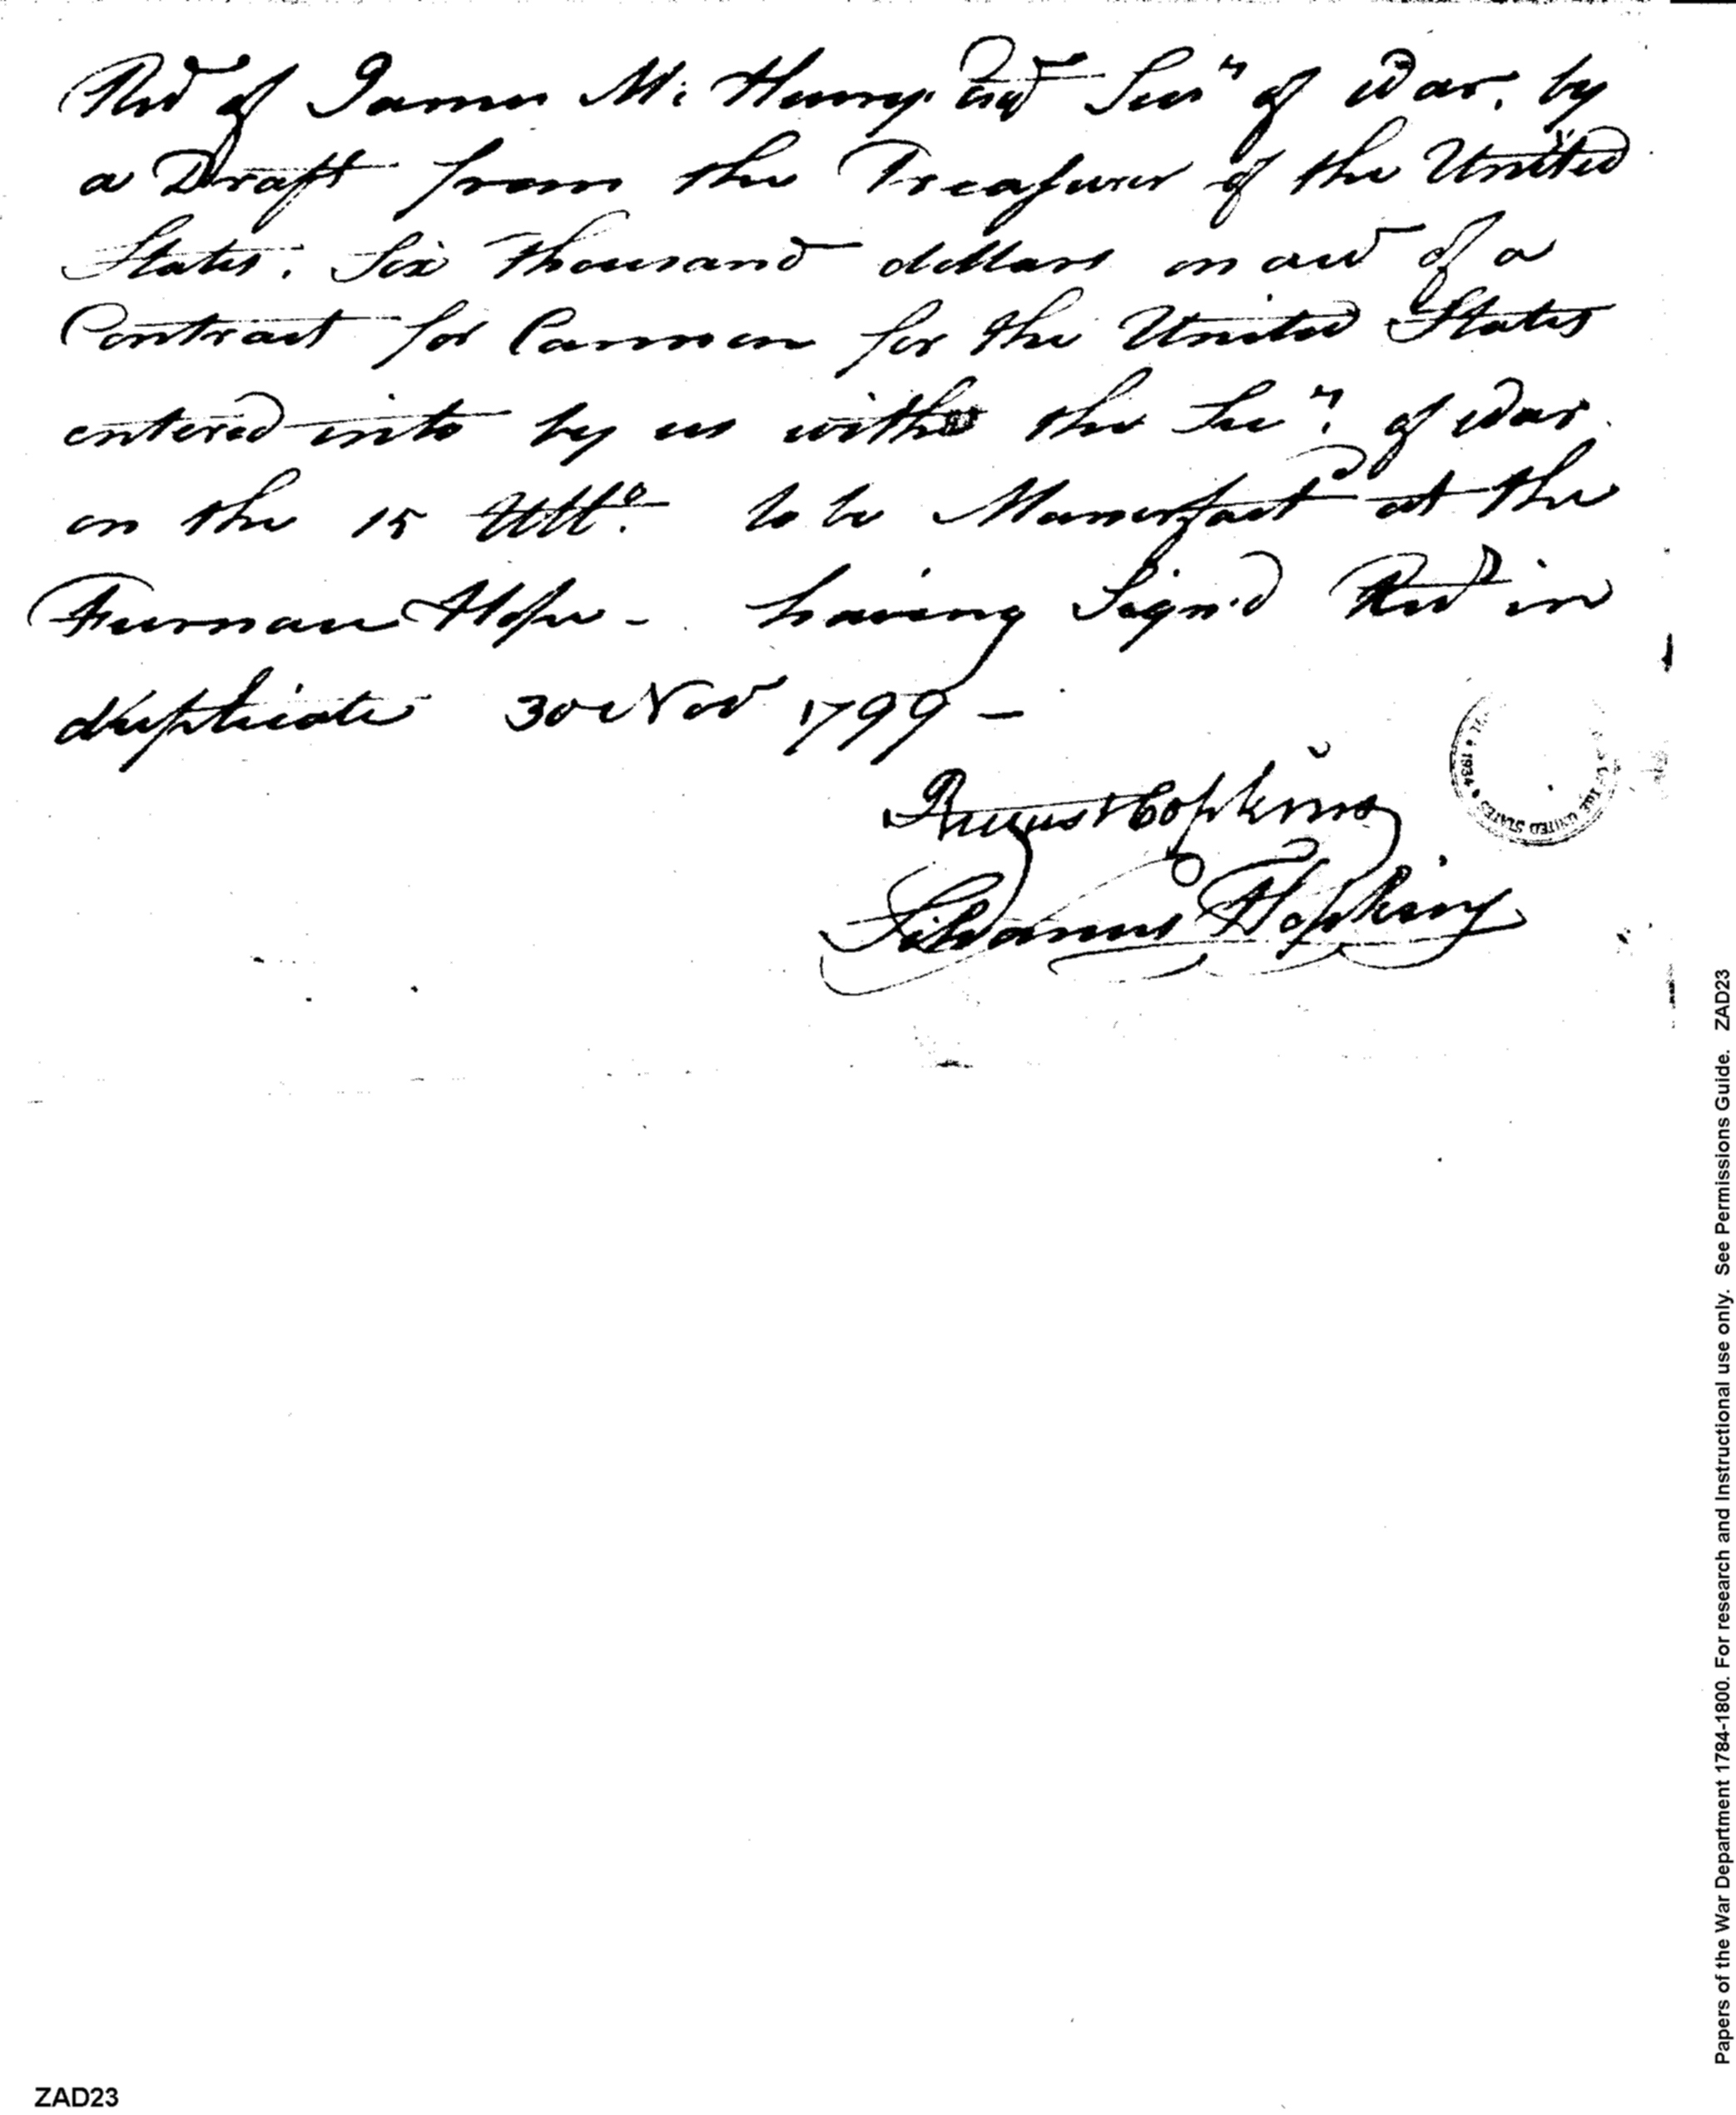 Recd of James McHenry Esqr Secy of War, by
a Draft from the Treasurer of the United
States. Six Thousand dollars on acct of a
Contract for Cannon for the United States
entered into by us with the Secy of War
on the 15 Ulto to be Manufactd at the
Furnace Hope - having Signd Recd in
duplicate 30 Nov 1799 -
Rufus Hopkins
Silvanus Hopkins
1934
THE UNITED STATES
Papers of the War Department 1784-1800. For research and Instructional use only. See Permissions Guide. ZAD23
ZAD23